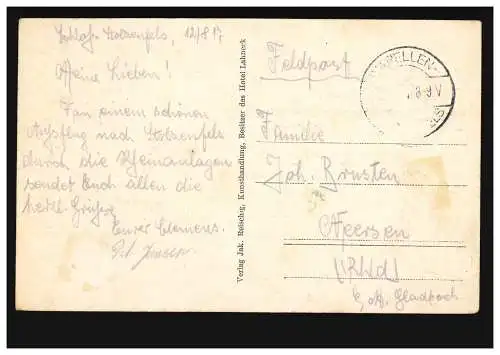 Schloß Stolzenfels, 12/8 17
Meine Lieben!
Von einem schönen
Ausflug nach Stolzenfels
durch die Rheinanlagen
sendet Euch allen die
herzl. Grüße
Euer Clemens.
Jansen
Verlag Jak. Reisclug, Kunsthandlung, Besitzer des Hotel Lahneck
Feldpost
CAPELLEN-
8-9V
Familie
Joh. Brüsten
Neersen
(Rhld)
b. M. Gladbach